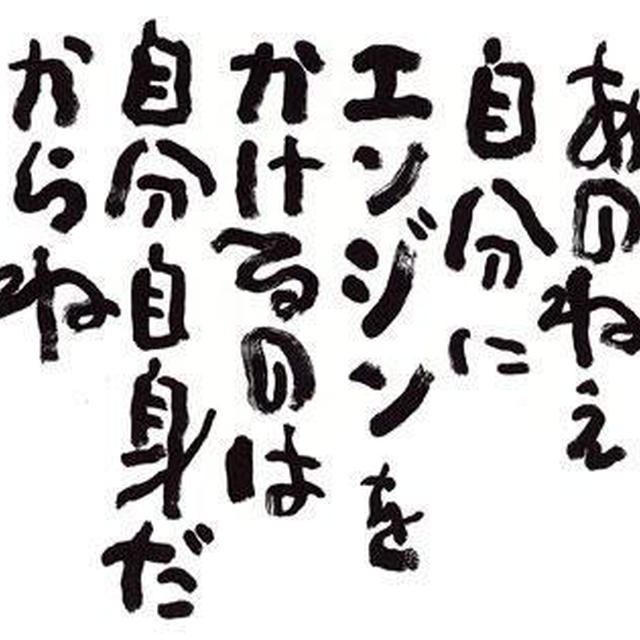 あのねえ
自分に
エンジンを
かけるのは
自分自身だ
からね